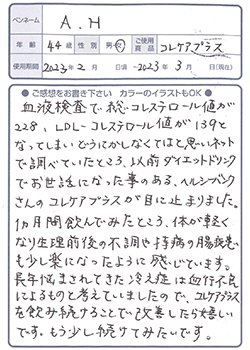 ペンネーム A.H
年齢 44才 性別 男・女 ご使用商品 コレケアプラス
使用期間 2023年2月 日頃 ~2023年3月 日(現在)
●ご感想をお書き下さい カラーのイラストもOK●
血液検査で総コレステロール値が
228、LDL-コレステロール値が139と
なってしまいどうにかしなくてはと思いネット
で調べていたところ、以前ダイエットドリンク
でお世話になった事のある、ヘルシーバンク
さんのコレケアプラスが目に止まりました。
1カ月間飲んでみたところ、体が軽く
なり生理前後の不調や持病の腸疾患
も少し楽になったように感じています。
長年悩まされてきた冷え症は血行不良
によるものと考えていましたので、コレケアプラス
を飲み続けることで改善したら嬉しい
です。もう少し続けてみたいです。